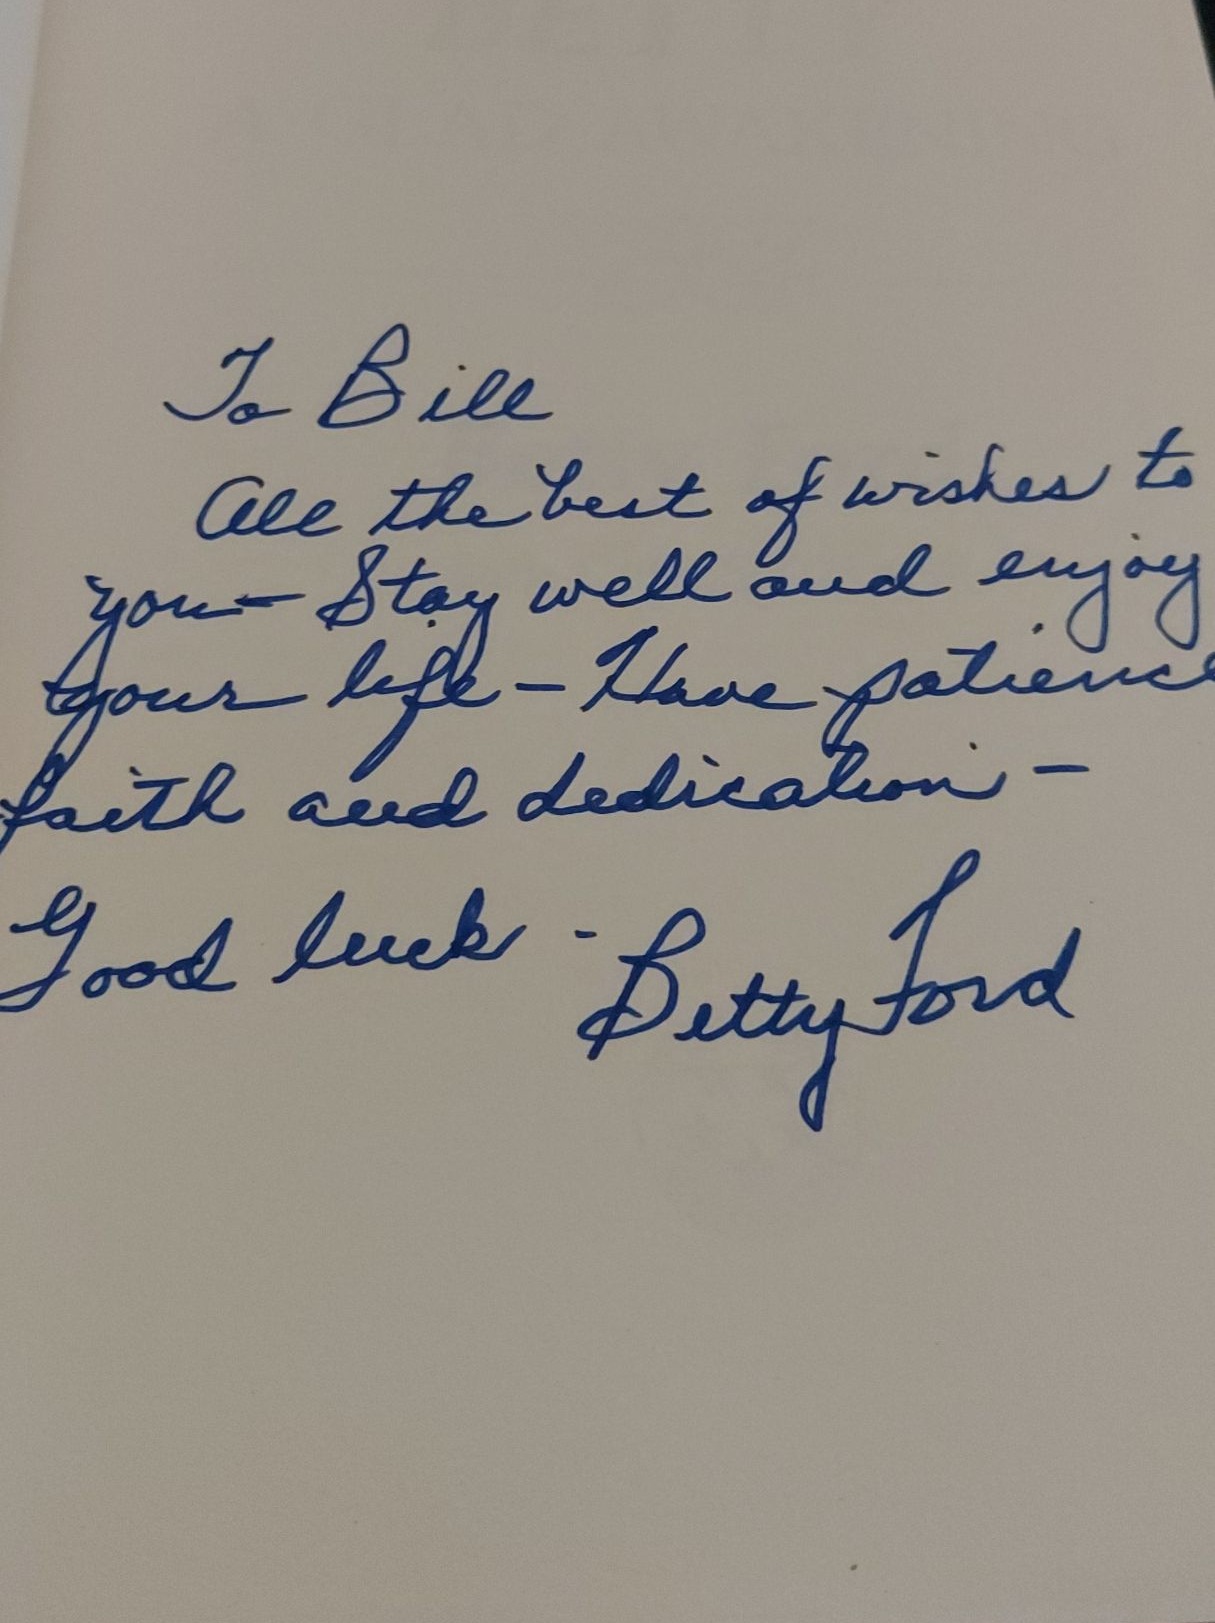 To Bill
All the best of wishes to
you - Stay well and enjoy
your life - Have patience
faith and dedication -
Good luck - Betty Ford